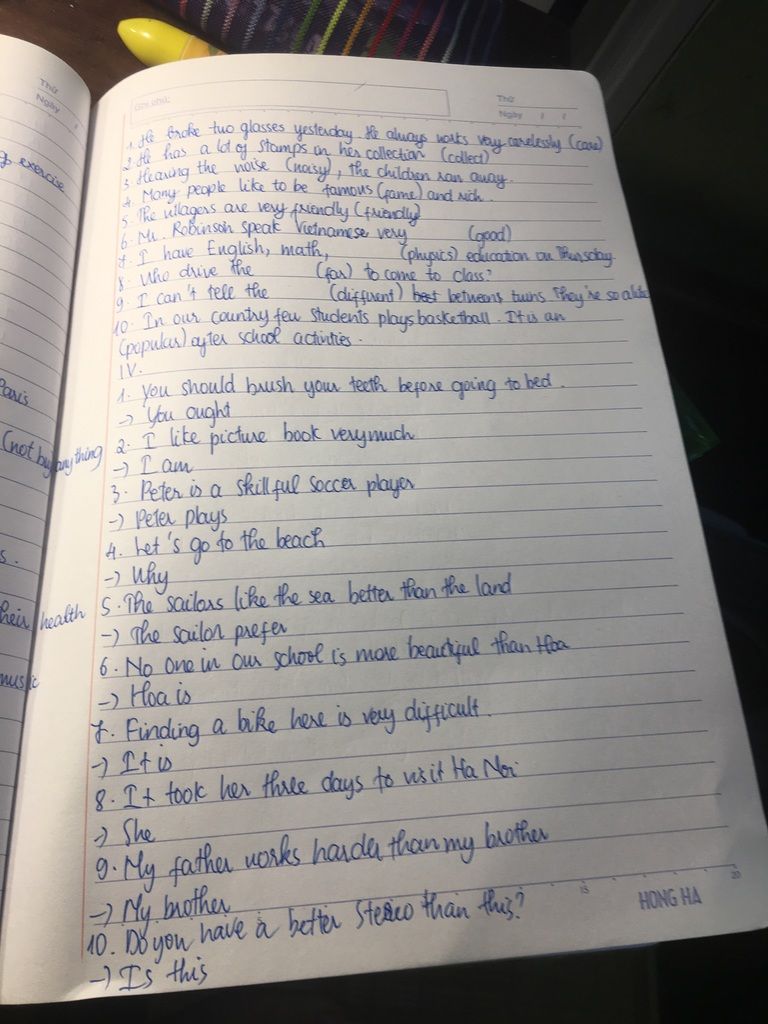 Thứ
Ngày
Thứ
Ngày
exercise
Paris
(not buy anything
s.
their health
music
1. He broke two glasses yesterday. He always works very carelessly (care)
2. He has a lot of stamps in her collection (collect)
3. Hearing the noise (noisy), the children ran away.
4. Many people like to be famous (fame) and rich.
5. The villagers are very friendly (friendly)
6. Mr. Robinson speak Vietnamese very (good)
7. I have English, math, (physics) education on Thursday.
8. Who drive the (far) to come to class?
9. I can't tell the (different) best betweens twins They're so alike
10. In our country few students plays basketball. It is an
(popular) after school activities.
IV.
1. You should brush your teeth before going to bed.
-> You ought
2. I like picture book very much
-> I am
3. Peter is a skillful soccer player
-> Peter plays
4. Let's go to the beach
-> Why
5. The sailors like the sea better than the land
-> The sailor prefer
6. No one in our school is more beautiful than Hoa
-> Hoa is
7. Finding a bike here is very difficult.
-> It is
8. It took her three days to visit Ha Noi
-> She
9. My father works harder than my brother
-> My brother
10. Do you have a better stereo than this?
-> Is this
15
20
HONG HA